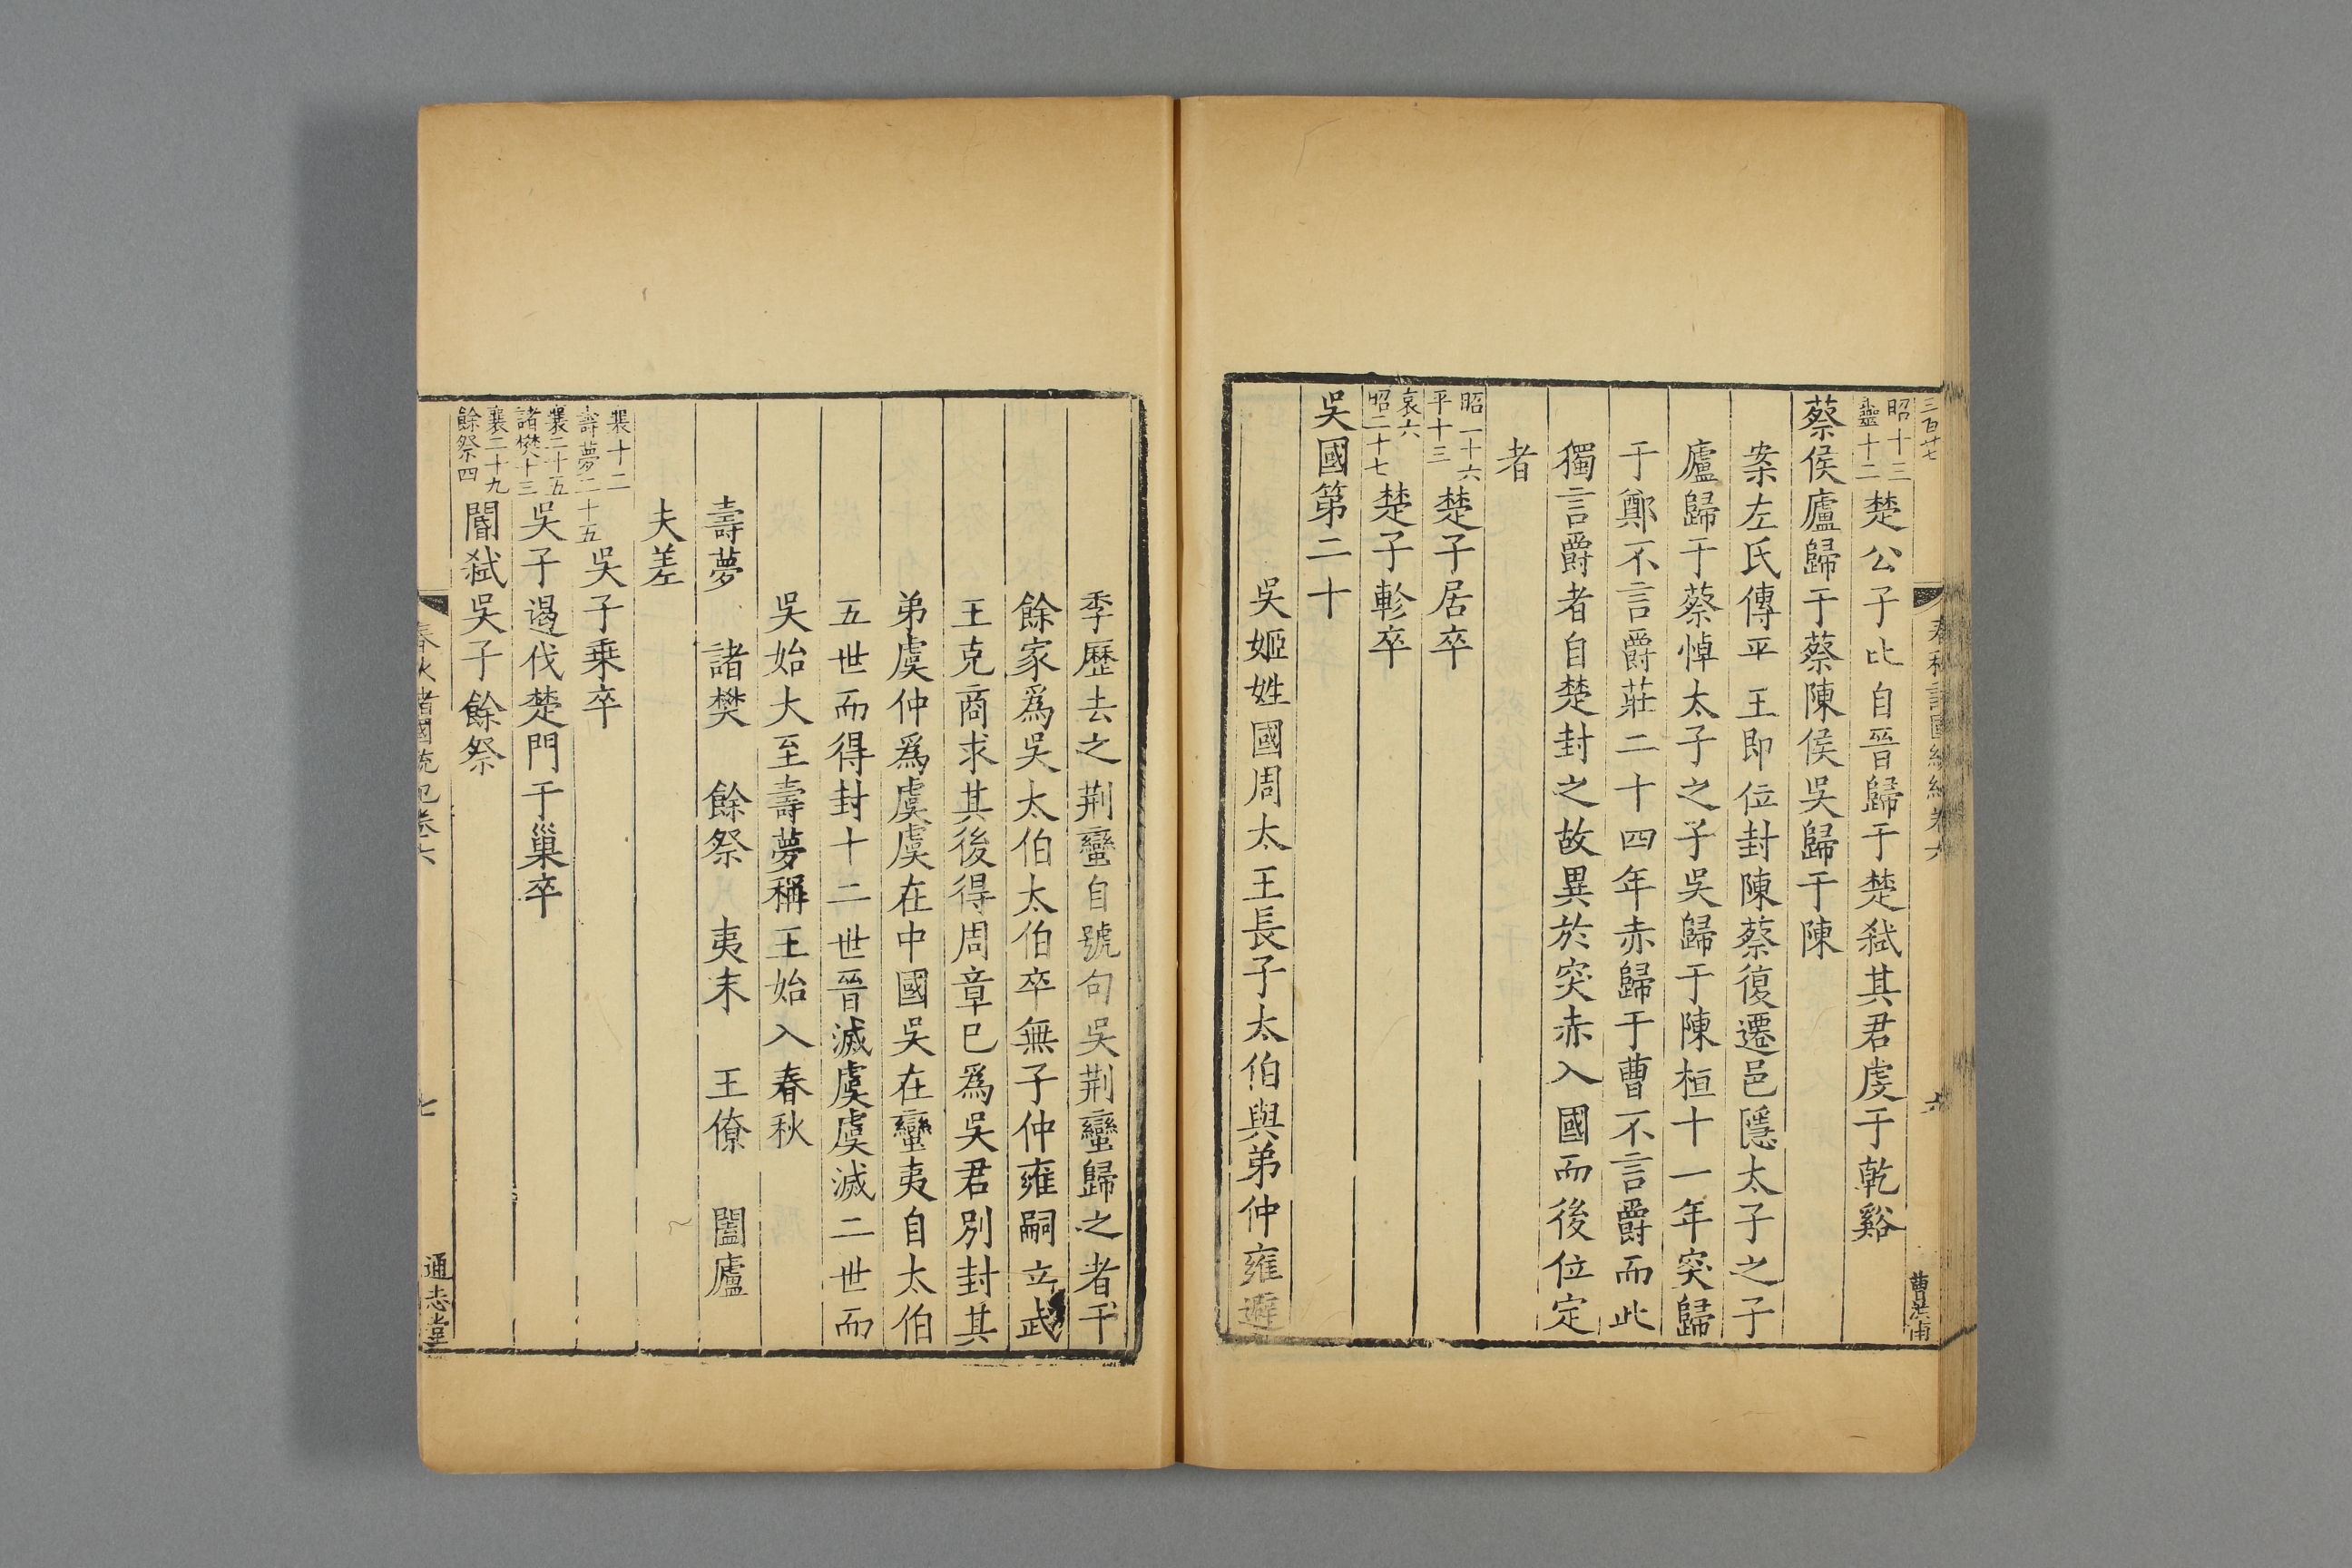 三百廿七
昭十三
靈十二
楚公子比自晉歸于楚弑其君虔于乾谿
蔡侯廬歸于蔡陳侯吳歸于陳
案左氏傳平王即位封陳蔡復遷邑隱太子之子
廬歸于蔡悼太子之子吳歸于陳桓十一年突歸
于鄭不言爵莊二十四年赤歸于曹不言爵而此
獨言爵者自楚封之故異於突赤入國而後位定
者
昭二十六
平十三
楚子居卒
哀六
昭二十七
楚子軫卒
吳國第二十
吳姬姓國周太王長子太伯與弟仲雍避
季歷去之荆蠻自號句吳荆蠻歸之者千
餘家爲吳太伯太伯卒無子仲雍嗣立武
王克商求其後得周章已爲吳君別封其
弟虞仲爲虞虞在中國吳在蠻夷自太伯
五世而得封十二世晉滅虞虞滅二世而
吳始大至壽夢稱王始入春秋
壽夢 諸樊 餘祭 夷末 王僚 闔廬
夫差
襄十二
壽夢二十五
吳子乘卒
襄二十五
諸樊十三
吳子遏伐楚門于巢卒
襄二十九
餘祭四
閽弑吳子餘祭
春秋諸國統紀卷六
七
通志堂